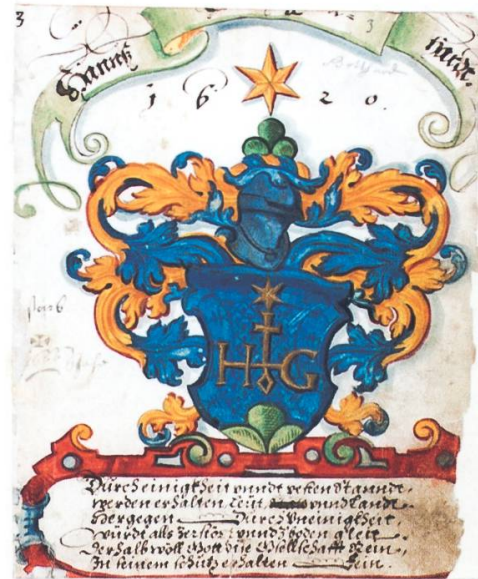 3
3
1620.
H G
Durch einigkheit vnndt vesten Stanndt,
werden erhalten Leüt vnnd Landt
Hergegen Durch Vneinigkheit,
würdt alls Zerstört vnnd boden gleit
Derhalb woll Gott die Gsellschafft Rein,
In seinem schutz erhalten Fein.